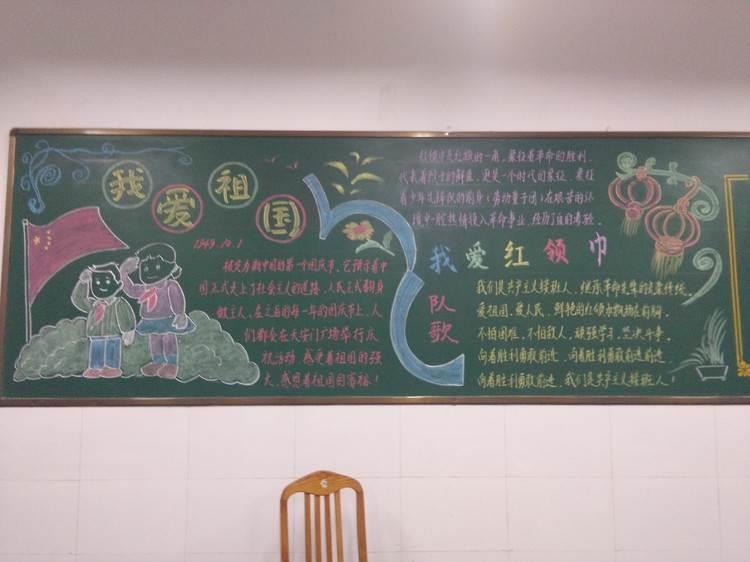 我爱祖国
1949.10.1
被定为新中国的第一个国庆节，它预示着中
国正式走上了社会主义的道路，人民正式翻身
做主人，在之后的每一年的国庆节上，人
们都会在天安门广场举行庆
祝活动，感受着祖国的强
大，感恩着祖国的富裕！
红领巾是红旗的一角，象征着革命的胜利。
代表着烈士的鲜血，更是一个时代的象征，象征
着少年先锋队的前身（劳动童子团）在艰苦的环
境中一腔热情投入革命事业，经历了血的考验。
我爱红领巾
队歌
我们是共产主义接班人，继承革命先辈的光荣传统，
爱祖国，爱人民，鲜艳的红领巾飘扬在前胸，
不怕困难，不怕敌人，顽强学习，坚决斗争，
向着胜利勇敢前进，向着胜利勇敢前进前进
向着胜利勇敢前进，我们是共产主义接班人！